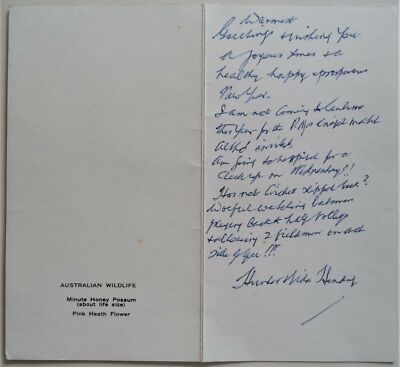 AUSTRALIAN WILDLIFE
Minute Honey Possum
(about life size)
Pink Heath Flower
Warmest
Greetings & wishing You
a Joyous Xmas & a
healthy, happy & prosperous
New Year.
I am not coming to Canberra
this Year for the P.M's Cricket Match
altho' invited.
Am going to hospital for a
check up on Wednesday!!
Has not Cricket slipped back?
Woeful watching Batsmen
playing Back to half Volleys
& allowing 2 fieldmen on each
side of you!!!
Hunter Hendry